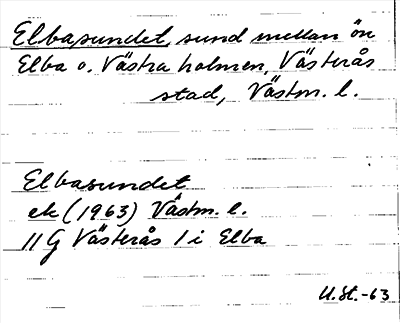 Elbasundet, sund mellan ön
Elba o. Västra holmen, Västerås
stad, Västm. l.
Elbasundet
ek (1963) Västm. l.
11 G Västerås 1 i Elba
U.St.-63